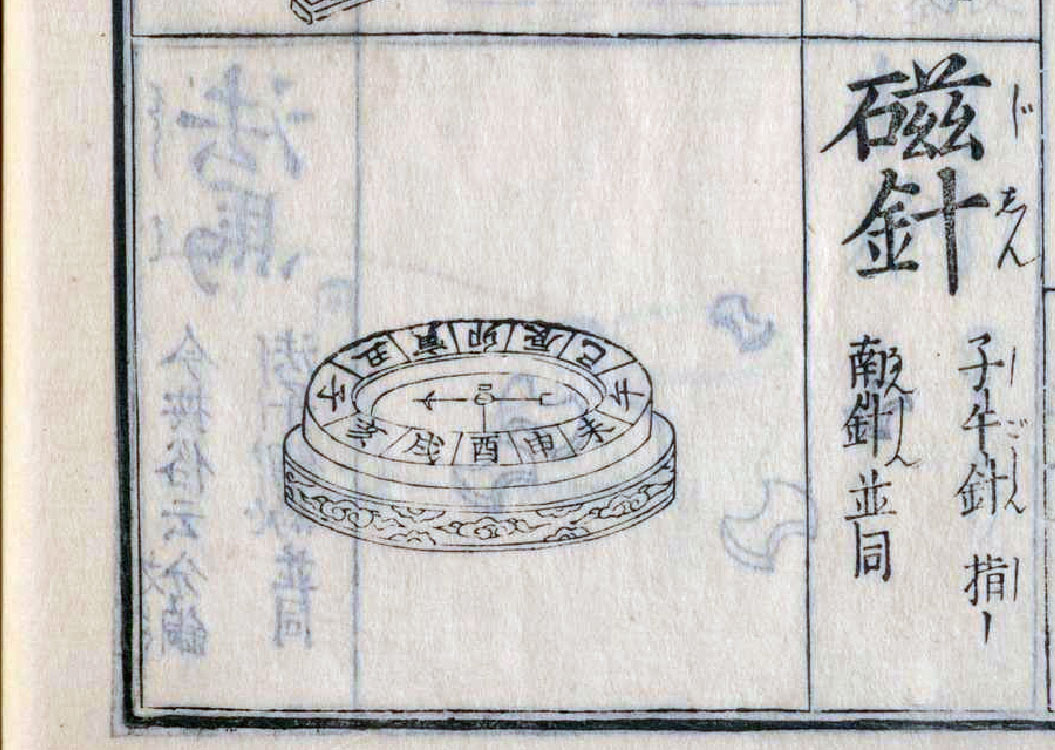 磁針
じしん
子午針 指
ごしん
南針 並同
丑
寅
卯
辰
巳
午
未
申
酉
戌
亥
子